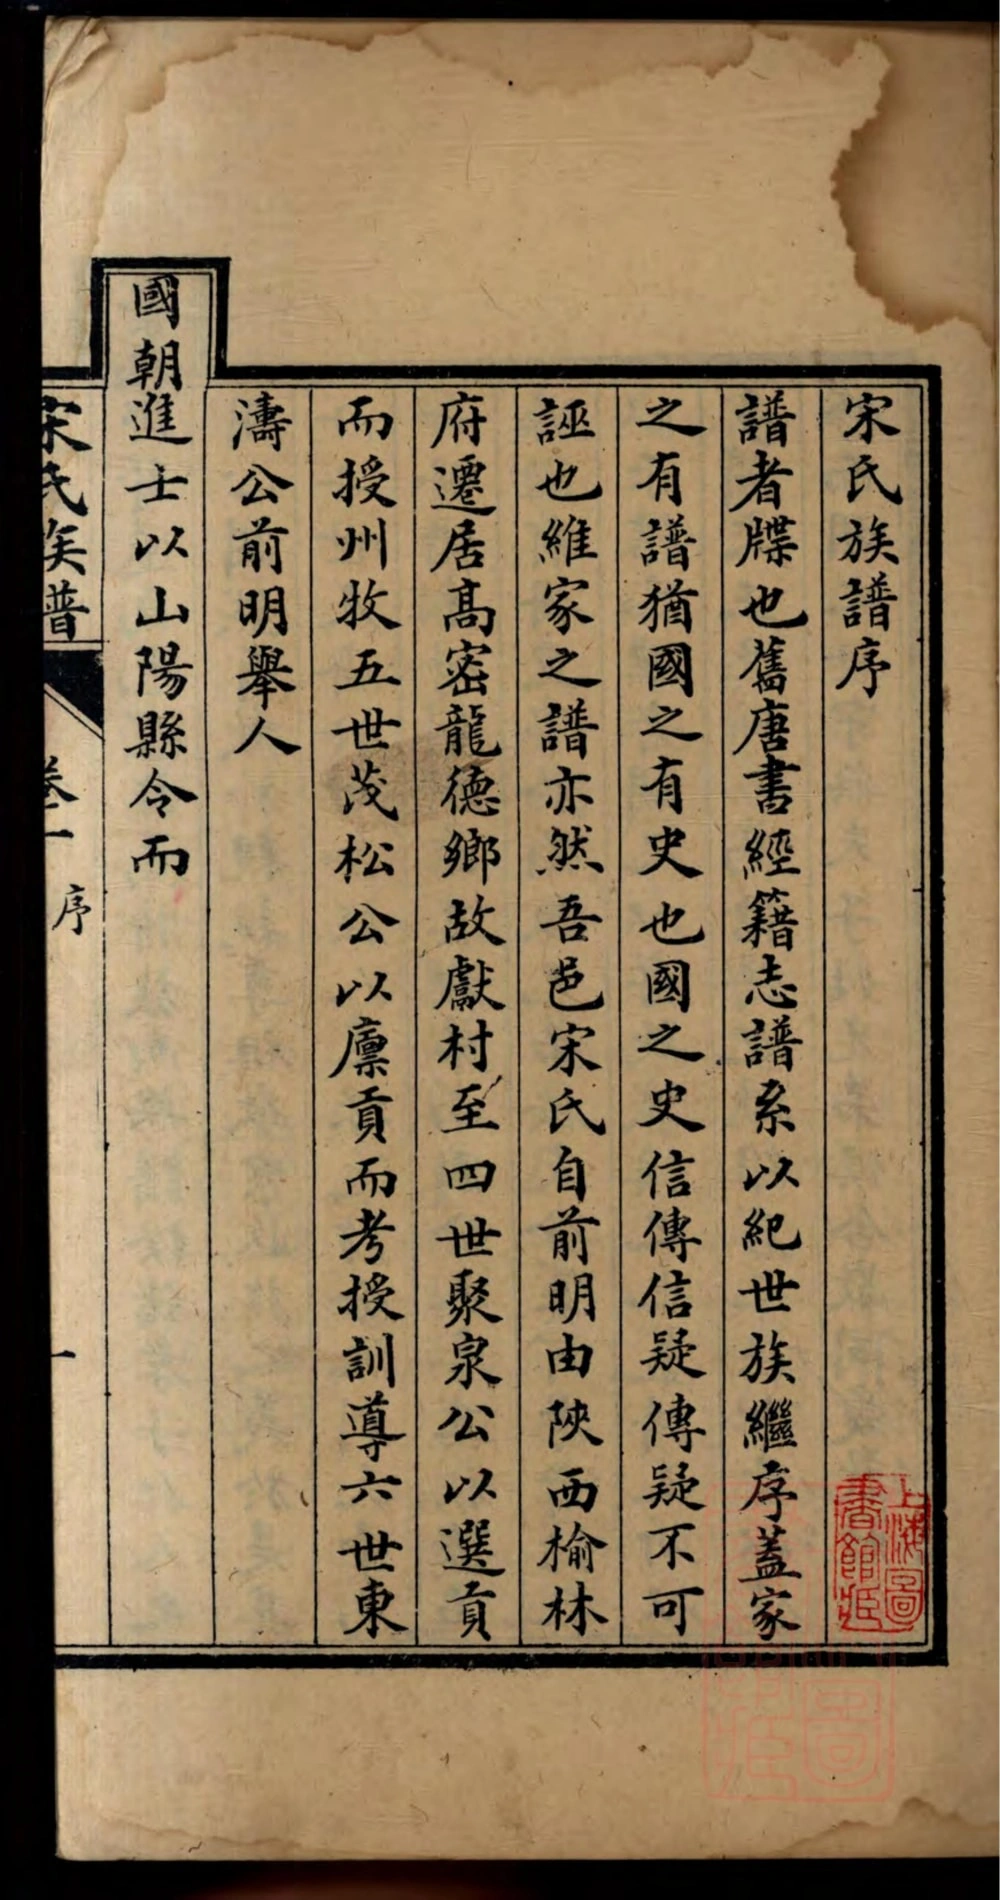 宋氏族譜序
譜者牒也舊唐書經籍志譜系以紀世族繼序蓋家
之有譜猶國之有史也國之史信傳信疑傳疑不可
誣也維家之譜亦然吾邑宋氏自前明由陝西榆林
府遷居高密龍德鄉故獻村至四世聚泉公以選貢
而授州牧五世茂松公以廩貢而考授訓導六世東
濤公前明舉人
國朝進士以山陽縣令而
宋氏族譜
卷一
序
一
上海圖
書館藏